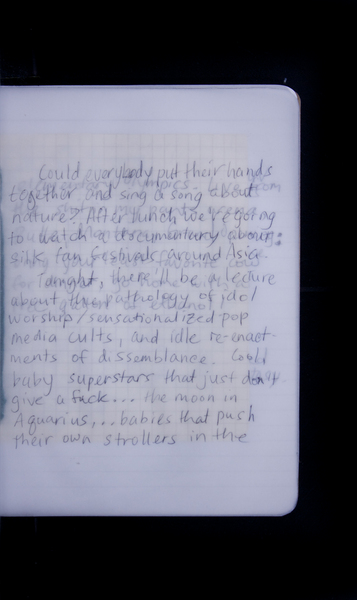 Could everybody put their hands
together and sing a song about
nature? After lunch we're going
to watch a documentary about
silk fan festivals around Asia.
Tonight, there'll be a lecture
about the pathology of idol
worship/sensationalized pop
media cults, and idle re-enact-
ments of dissemblance. Could
baby superstars that just don't
give a fuck... the moon in
Aquarius,... babies that push
their own strollers in the